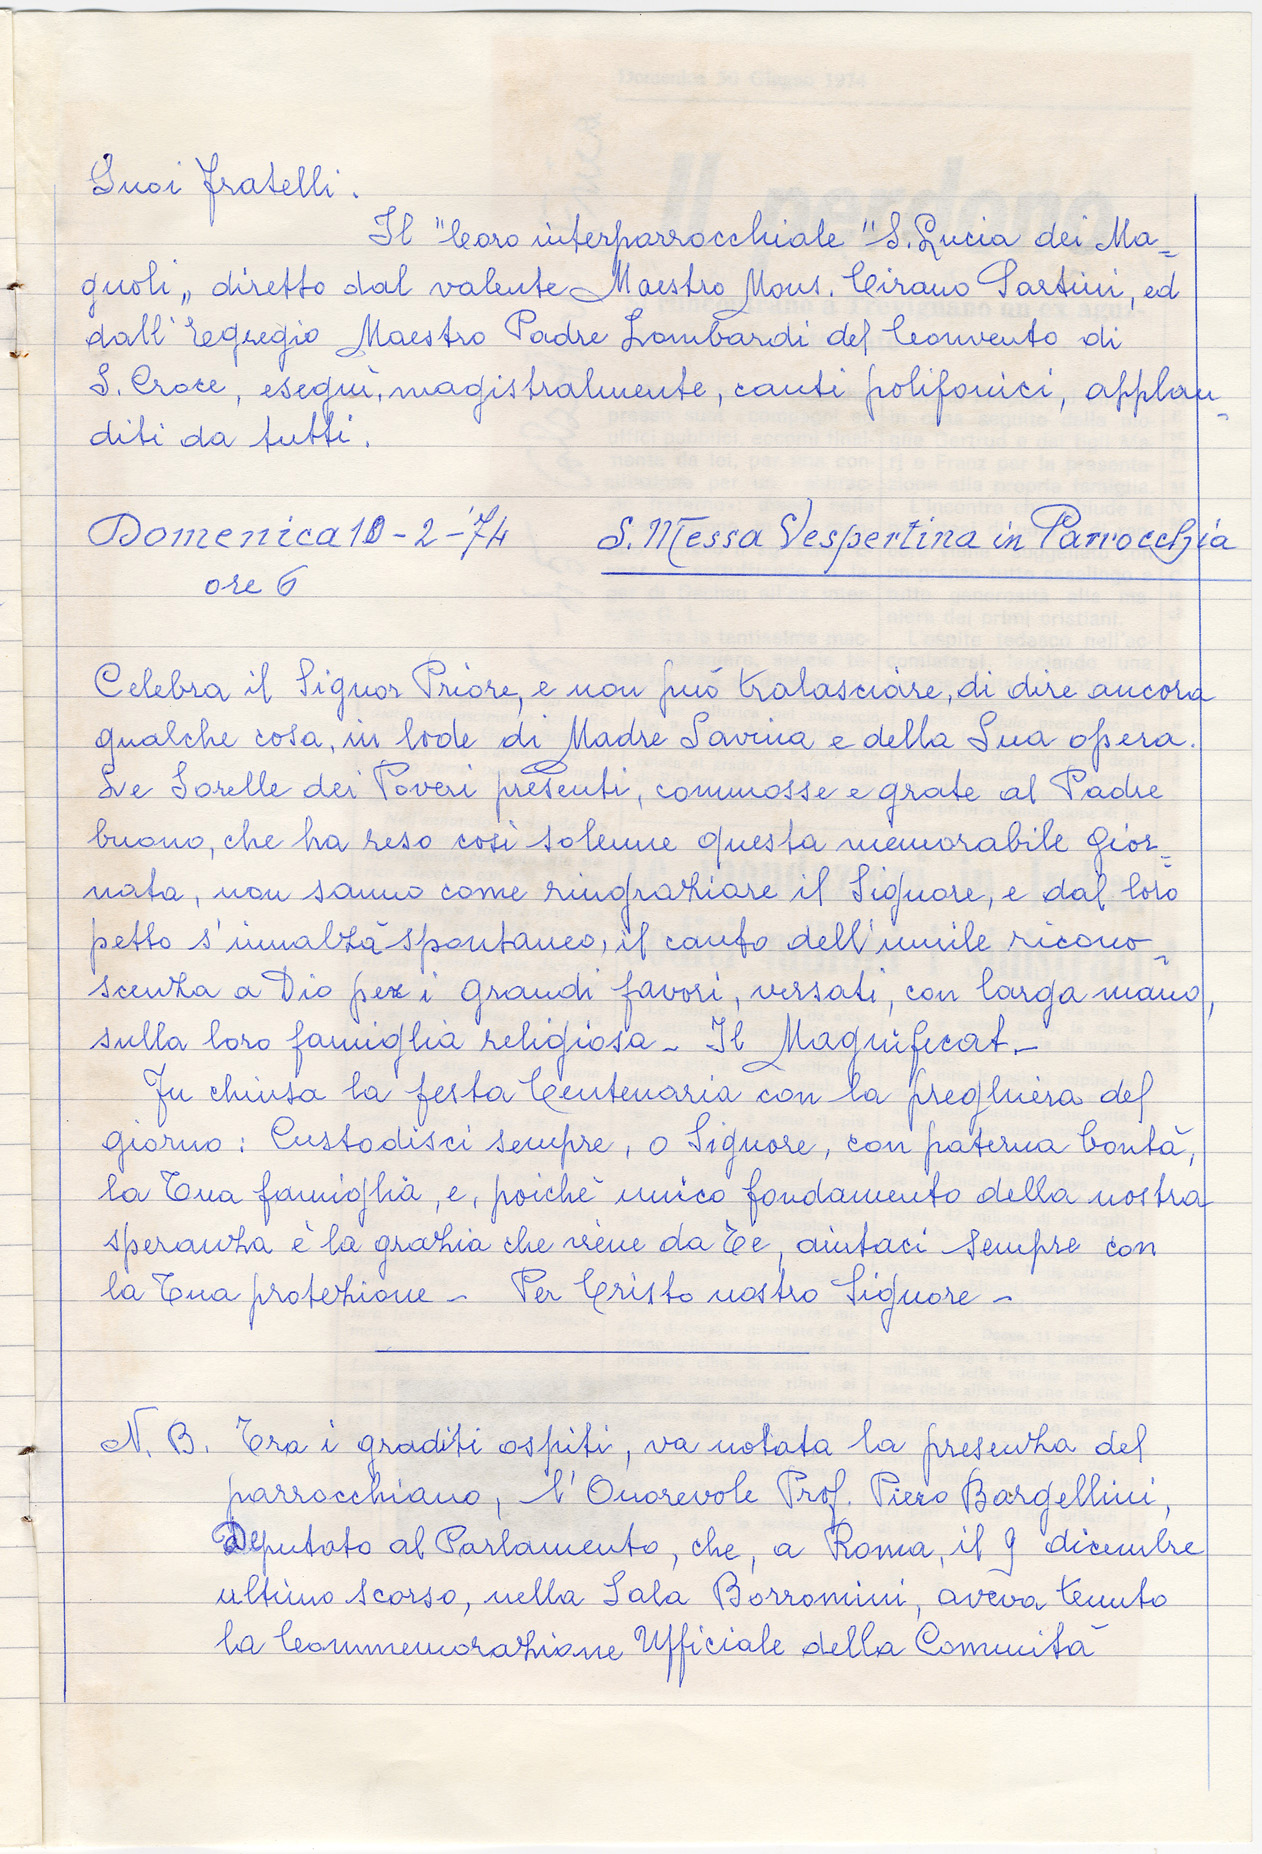 Suoi fratelli.
Il "Coro interparrocchiale "S. Lucia dei Ma=
gnoli„ diretto dal valente Maestro Mons. Cirano Sartini, ed
dall'Egregio Maestro Padre Lombardi del Convento di
S. Croce, eseguì, magistralmente, canti polifonici, applau-
diti da tutti.
Domenica 10-2-'74 S. Messa Vespertina in Parrocchia
ore 6
Celebra il Signor Priore, e non può tralasciare, di dire ancora
qualche cosa, in lode di Madre Savina e della Sua opera.
Le Sorelle dei Poveri presenti, commosse e grate al Padre
buono, che ha reso così solenne questa memorabile gior=
nata, non sanno come ringraziare il Signore, e dal loro
petto s'innalzà spontaneo, il canto dell'umile ricono-
scenza a Dio per i grandi favori, versati, con larga mano,
sulla loro famiglia religiosa - Il Magnificat. -
Fu chiusa la festa Centenaria con la preghiera del
giorno: Custodisci sempre, o Signore, con paterna bontà,
la Tua famiglia, e, poichè unico fondamento della nostra
speranza è la grazia che viene da Te, aiutaci sempre con
la Tua protezione - Per Cristo nostro Signore -
N. B. Tra i graditi ospiti, va notata la presenza del
parrocchiano, l'Onorevole Prof. Piero Bargellini,
Deputato al Parlamento, che, a Roma, il 9 dicembre
ultimo scorso, nella Sala Borromini, aveva tenuto
la Commemorazione Ufficiale della Comunità